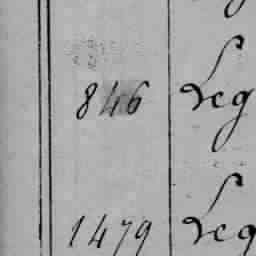 846 Leg
1479 Leg